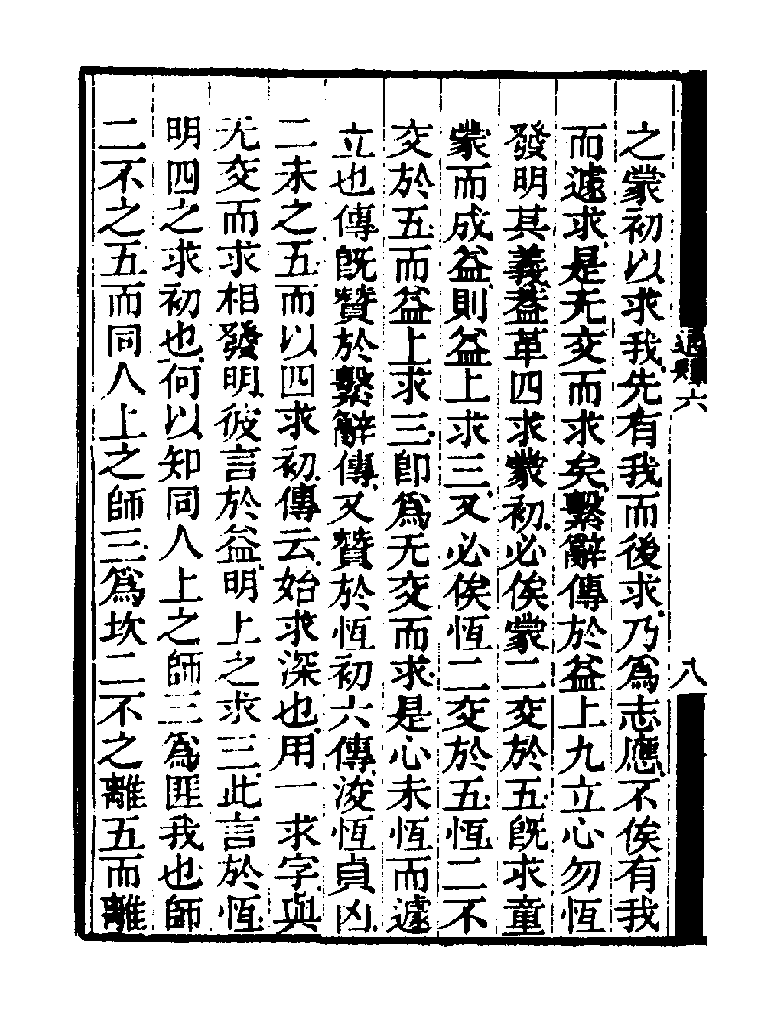 之蒙初以求我先有我而後求乃爲志應不俟有我
而遽求是无交而求矣繫辭傳於益上九立心勿恆
發明其義葢革四求蒙初必俟蒙二交於五旣求童
蒙而成益則益上求三又必俟恆二交於五恆二不
交於五而益上求三卽爲无交而求是心未恆而遽
立也傳旣贊於繫辭傳又贊於恆初六傳浚恆貞凶
二未之五而以四求初傳云始求深也用一求字與
无交而求相發明彼言於益明上之求三此言於恆
明四之求初也何以知同人上之師三爲匪我也師
二不之五而同人上之師三爲坎二不之離五而離
六
八